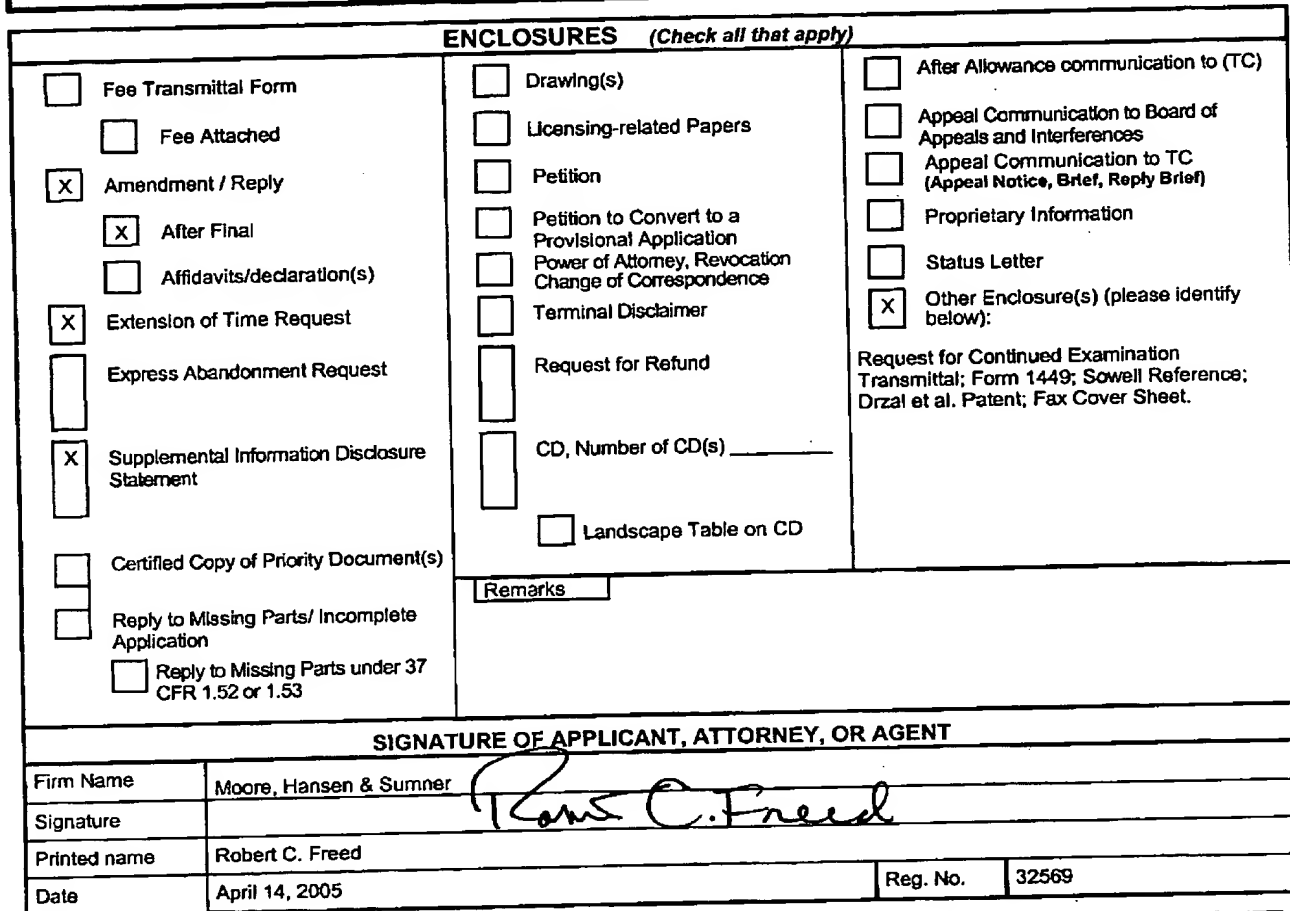 ENCLOSURES (Check all that apply)
Fee Transmittal Form
Fee Attached
X Amendment / Reply
X After Final
Affidavits/declaration(s)
X Extension of Time Request
Express Abandonment Request
X Supplemental Information Disclosure
Statement
Certified Copy of Priority Document(s)
Reply to Missing Parts/ Incomplete
Application
Reply to Missing Parts under 37
CFR 1.52 or 1.53
Drawing(s)
Licensing-related Papers
Petition
Petition to Convert to a
Provisional Application
Power of Attorney, Revocation
Change of Correspondence
Terminal Disclaimer
Request for Refund
CD, Number of CD(s) ________
Landscape Table on CD
After Allowance communication to (TC)
Appeal Communication to Board of
Appeals and Interferences
Appeal Communication to TC
(Appeal Notice, Brief, Reply Brief)
Proprietary Information
Status Letter
X Other Enclosure(s) (please identify
below):
Request for Continued Examination
Transmittal; Form 1449; Sowell Reference;
Drzal et al. Patent; Fax Cover Sheet.
Remarks
SIGNATURE OF APPLICANT, ATTORNEY, OR AGENT
Firm Name Moore, Hansen & Sumner
Signature Robert C. Freed
Printed name Robert C. Freed
Date April 14, 2005 Reg. No. 32569